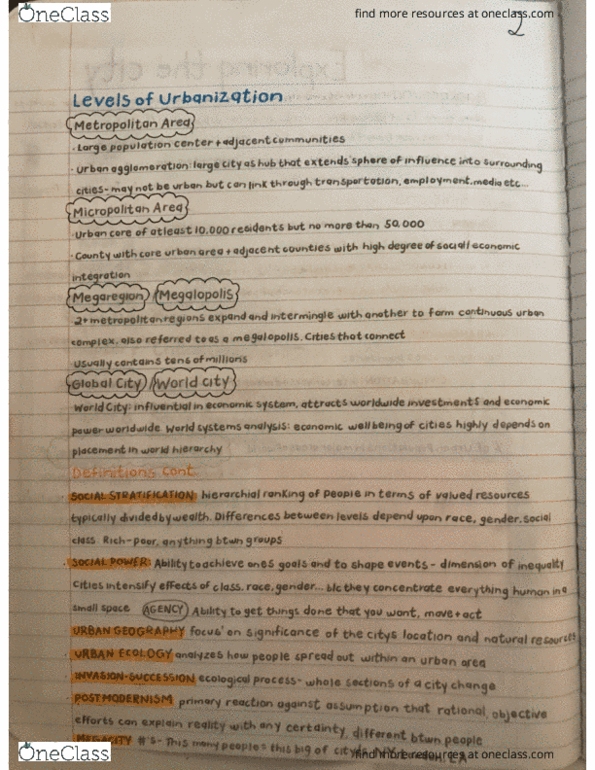 OneClass
find more resources at oneclass.com
2
Exploring the city
Levels of Urbanization
Metropolitan Area
· Large population center + adjacent communities
· Urban agglomeration: large city as hub that extends sphere of influence into surrounding
cities- may not be urban but can link through transportation, employment, media etc...
Micropolitan Area
· Urban core of atleast 10,000 residents but no more than 50,000
· County with core urban area + adjacent counties with high degree of social/economic
integration
Megaregion / Megalopolis
· 2+ metropolitan regions expand and intermingle with another to form continuous urban
complex, also referred to as a megalopolis. Cities that connect
Usually contains tens of millions
Global City / World city
World City: influential in economic system, attracts worldwide investments and economic
power worldwide. World systems analysis: economic wellbeing of cities highly depends on
placement in world hierarchy
Definitions cont.
· SOCIAL STRATIFICATION: hierarchial ranking of people in terms of valued resources
typically divided by wealth. Differences between levels depend upon race, gender, social
class. Rich-poor, anything btwn groups
· SOCIAL POWER: Ability to achieve ones goals and to shape events - dimension of inequality
Cities intensify effects of class, race, gender... b/c they concentrate everything human in a
small space AGENCY Ability to get things done that you want, move + act
URBAN GEOGRAPHY focus' on significance of the citys location and natural resources
· URBAN ECOLOGY analyzes how people spread out within an urban area
· INVASION-SUCCESSION ecological process- whole sections of a city change
· POSTMODERNISM primary reaction against assumption that rational, objective
efforts can explain reality with any certainty, different btwn people
· MEGACITY #'s- This many people = this big of city
OneClass
find more resources at oneclass.com